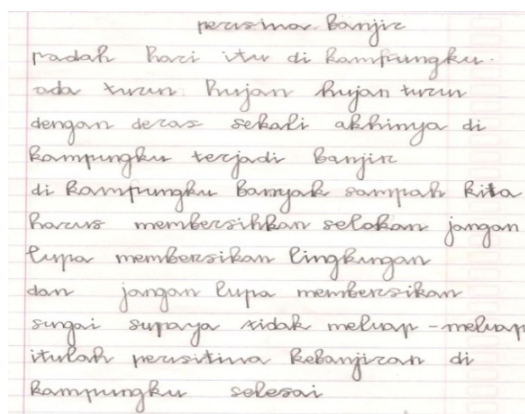 perisina Banjir
padah hari itu di kampungku.
ada turun hujan hujan turun
dengan deras sekali akhinya di
kampungku terjadi Banjir
di kampungku Banyak sampah kita
harus membersihkan selokan jangan
lupa membersikan lingkungan
dan jangan lupa membersikan
sungai supaya tidak meluap-meluap
itulah perisitiwa kebanjiran di
kampungku selesai